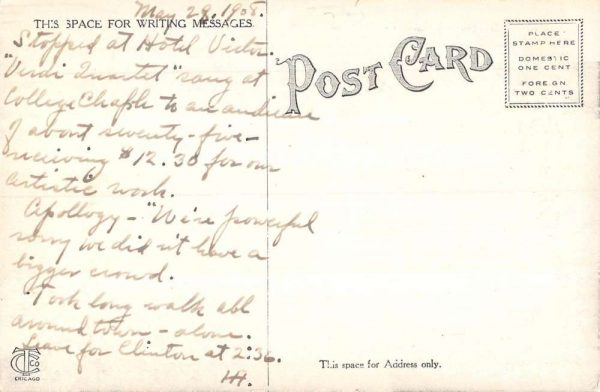 May 29, 1908.
THIS SPACE FOR WRITING MESSAGES
Stopped at Hotel Victor.
"Verdi Quartet" sang at
College Chaple to an audience
of about seventy-five -
receiving $12.30 for our
artistic work.
Apollogy - "We're powerful
sorry we did n't have a
bigger crowd.
Took long walk all
around town - alone.
Leave for Clinton at 2:36.
HH.
POST CARD
PLACE
STAMP HERE
DOMESTIC
ONE CENT
FOREIGN
TWO CENTS
This space for Address only.
CHICAGO